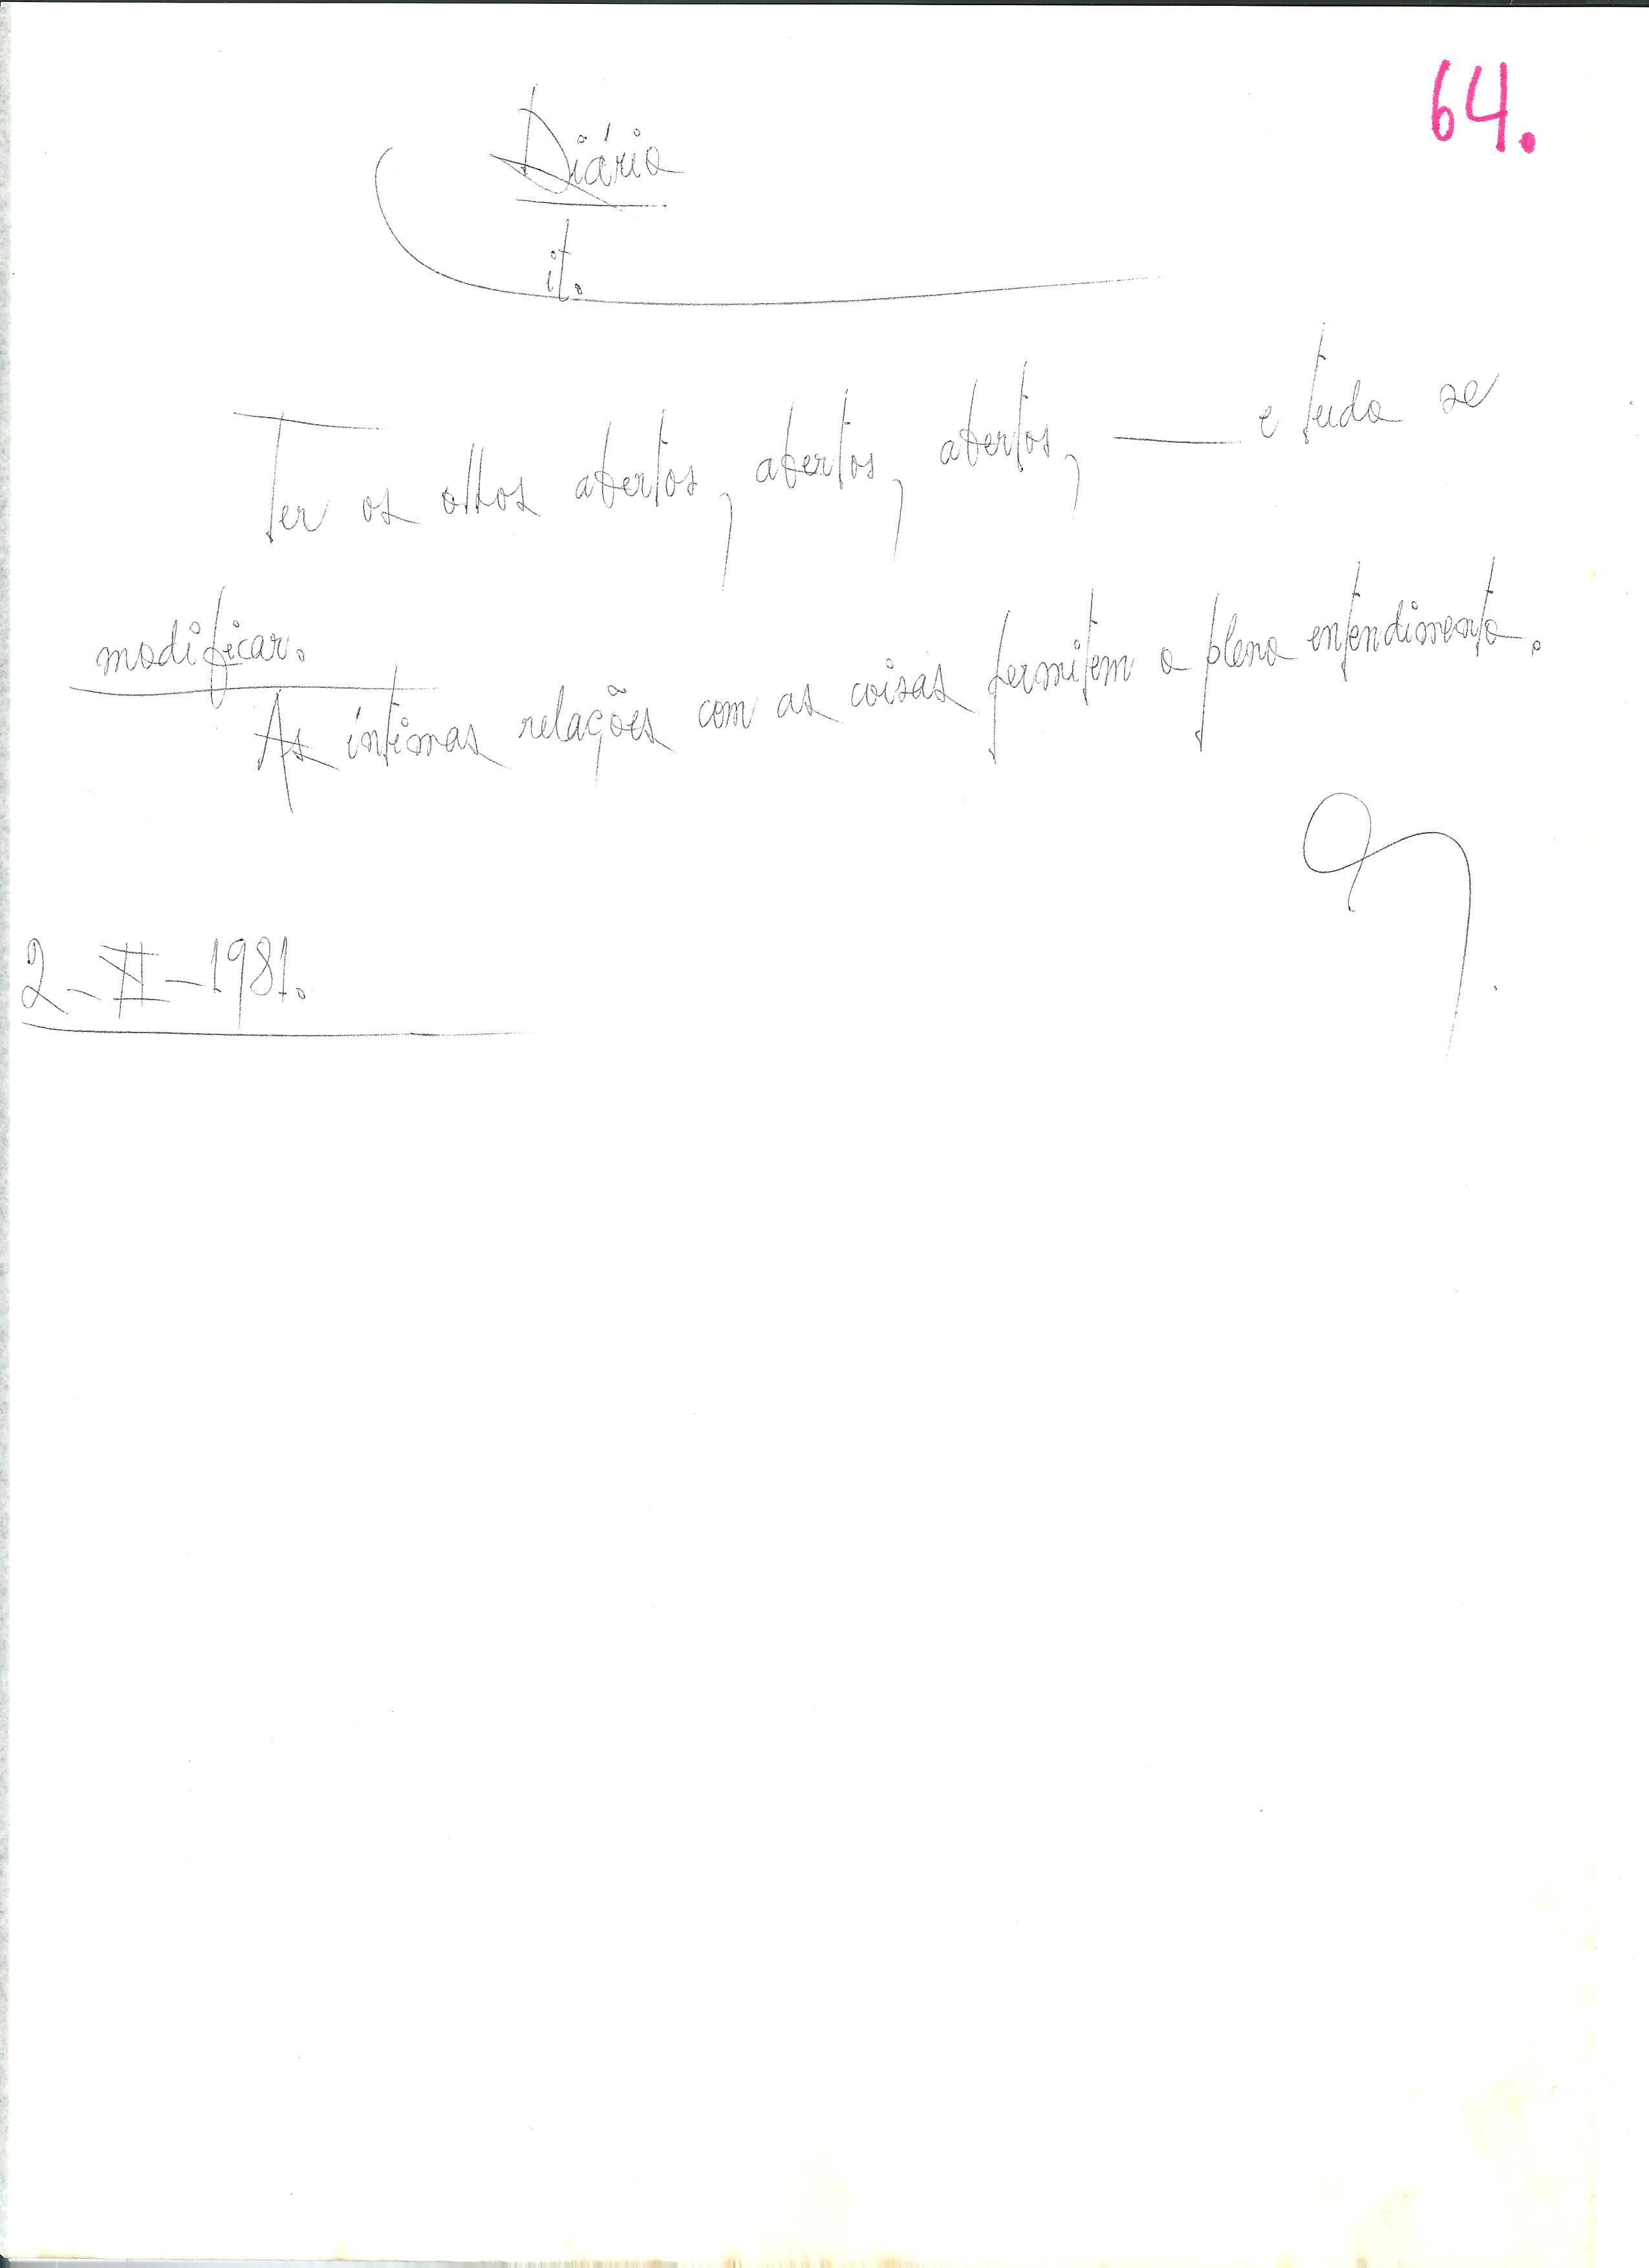 64.
Diário
it.
Ter os olhos abertos, abertos, abertos, — e tudo se
modificar.
As íntimas relações com as coisas permitem o pleno entendimento.
2-II-1981.